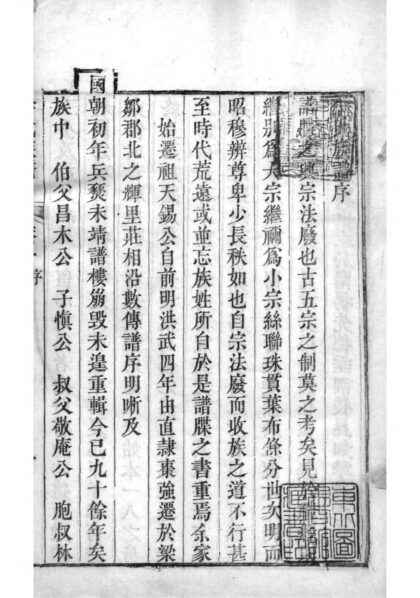 族譜序
譜牒之興宗法廢也古五宗之制莫之考矣見於
繼別爲大宗繼禰爲小宗絲聯珠貫葉布條分世次明而
昭穆辨尊卑少長秩如也自宗法廢而收族之道不行甚
至時代荒遠或並忘族姓所自於是譜牒之書重焉余家
始遷祖天錫公自前明洪武四年由直隷棗強遷於梁
鄒郡北之輝里莊相沿數傳譜序明晰及
國朝初年兵燹未靖譜樓崩毁未遑重輯今已九十餘年矣
族中 伯父昌木公 子慎公 叔父敬庵公 胞叔林
序